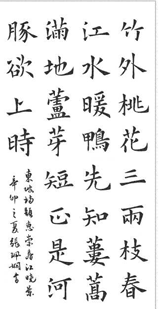 竹外桃花三兩枝春
江水暖鴨先知蔞蒿
滿地蘆芽短正是河
豚欲上時
惠崇春江曉景
辛卯之夏